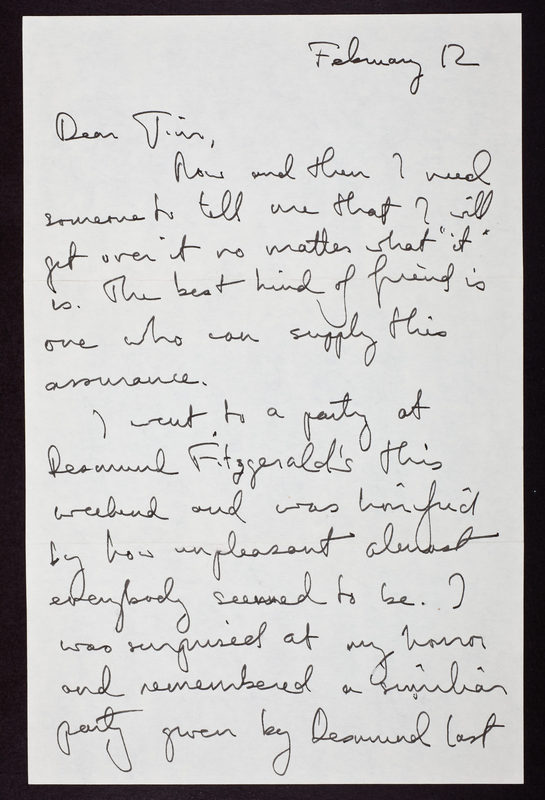 February 12
Dear Tim,
Now and then I need
someone to tell me that I will
get over it no matter what "it"
is. The best kind of friend is
one who can supply this
assurance.
I went to a party at
Desmond Fitzgerald's this
weekend and was horrified
by how unpleasant almost
everybody seemed to be. I
was surprised at my horror
and remembered a similiar
party given by Desmond last